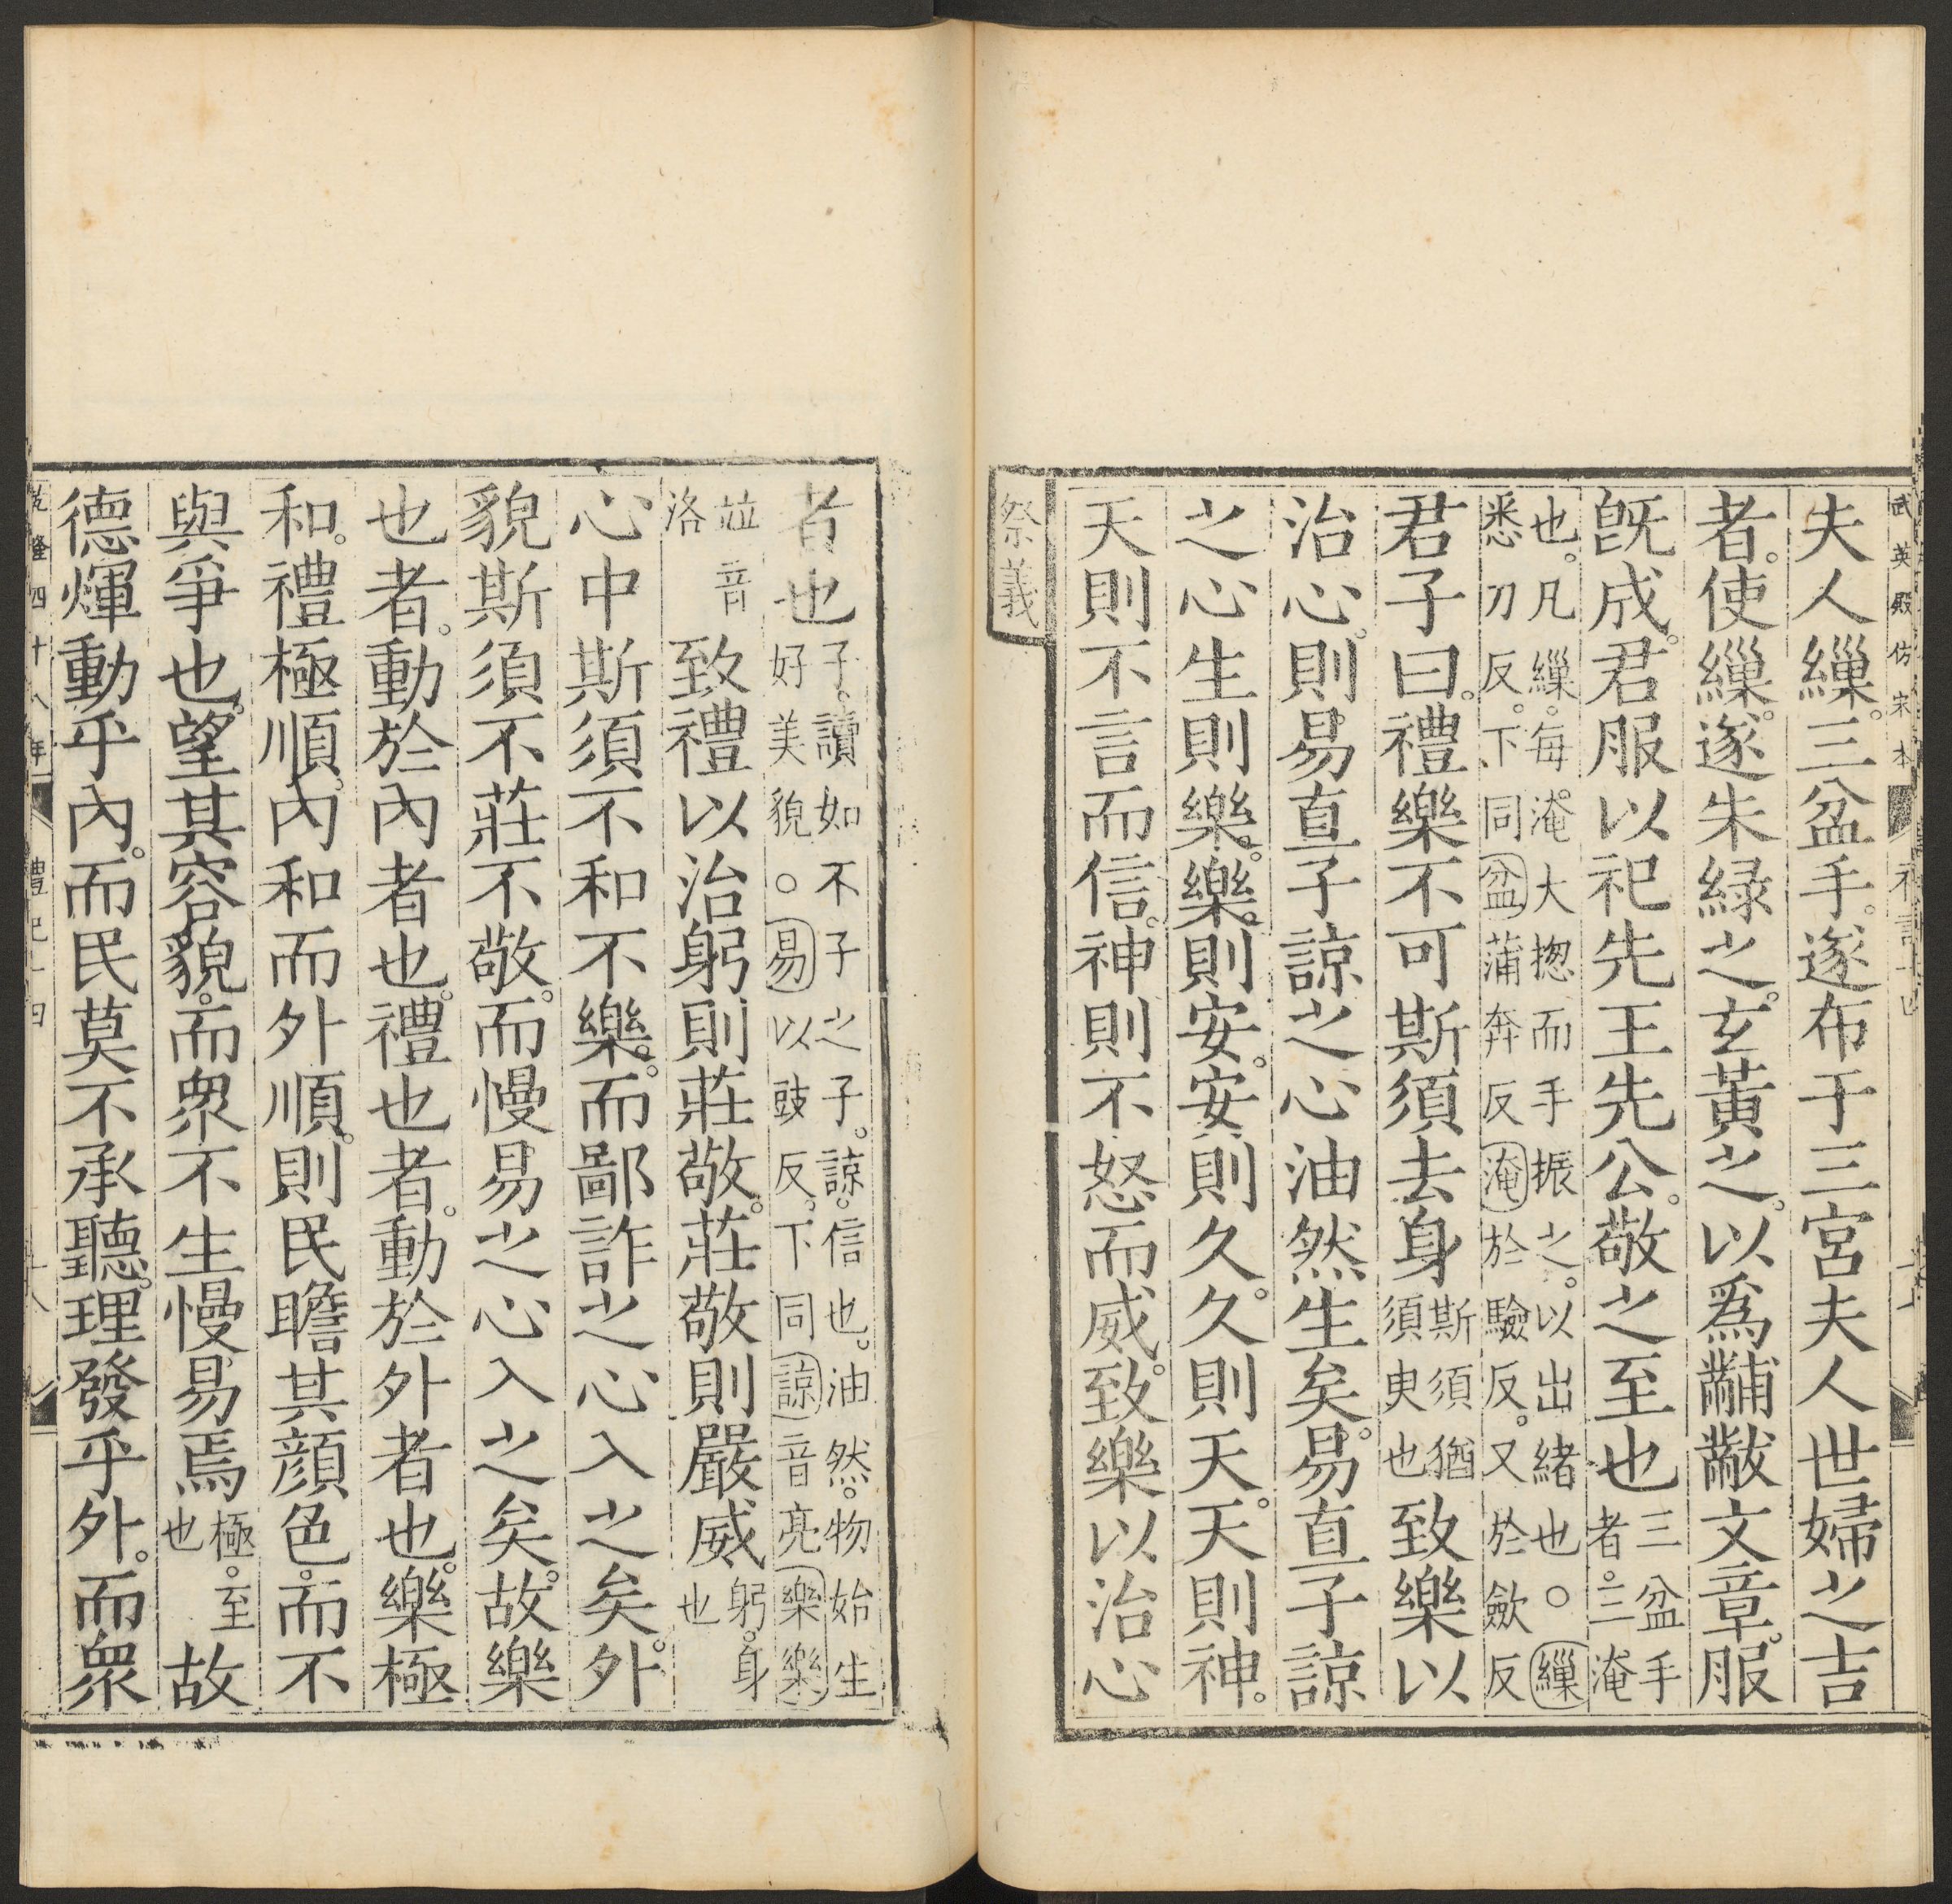 武英殿仿宋本
夫人繅。三盆手。遂布于三宮夫人世婦之吉
者。使繅。遂朱綠之。玄黃之。以爲黼黻文章。服
旣成。君服以祀先王先公。敬之至也三盆手
者。三淹
也。凡繅。每淹大揔而手振之。以出緒也○繅
悉刀反。下同盆蒲奔反淹於驗反。又於歛反
君子曰。禮樂不可斯須去身斯須猶
須臾也致樂以
治心。則易直子諒之心油然生矣。易直子諒
之心生則樂。樂則安。安則久。久則天。天則神。
天則不言而信。神則不怒而威。致樂以治心
祭義
者也子。讀如不子之子。諒。信也。油然。物始生
好美貌○易以豉反。下同諒音亮樂樂
竝音
洛致禮以治躬則莊敬。莊敬則嚴威躬。身
也
心中斯須不和不樂。而鄙詐之心入之矣。外
貌斯須不莊不敬。而慢易之心入之矣。故樂
也者。動於內者也。禮也者。動於外者也。樂極
和。禮極順。內和而外順。則民瞻其顏色。而不
與爭也。望其容貌。而衆不生慢易焉極。至
也故
德煇動乎內。而民莫不承聽。理發乎外。而衆
乾隆四十八年
禮記十四
十八